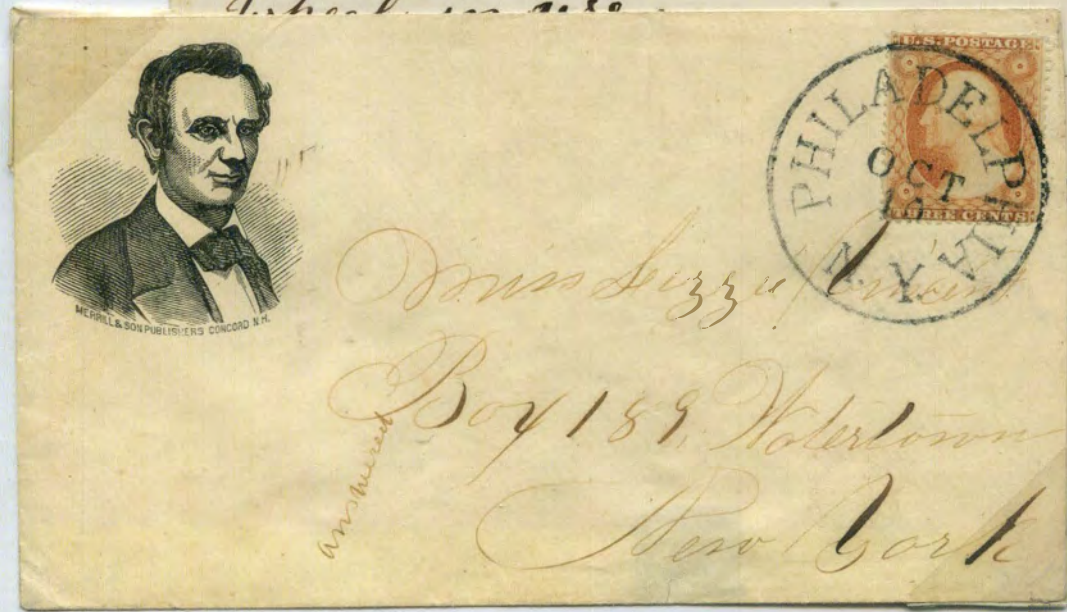 in use
U.S. POSTAGE
THREE CENTS
PHILADELPHIA
N.Y.
OCT
MERRILL & SON PUBLISHERS CONCORD N.H.
Miss Lizzie
Box 189, Watertown
New York
answered